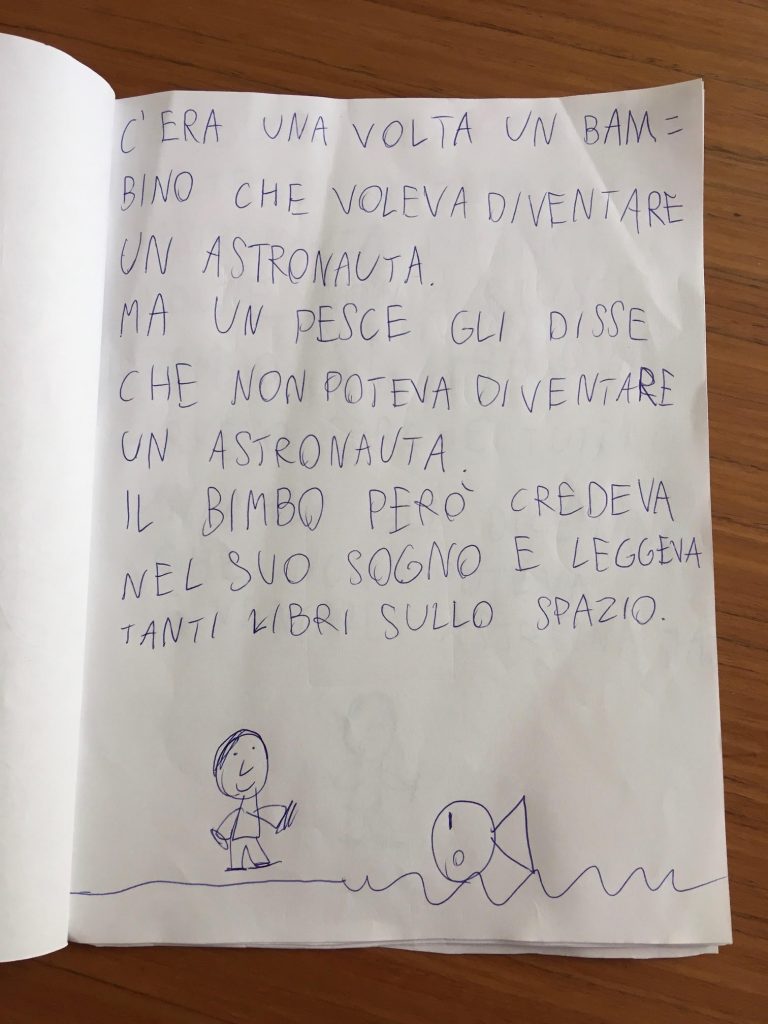 C'ERA UNA VOLTA UN BAM=
BINO CHE VOLEVA DIVENTARE
UN ASTRONAUTA.
MA UN PESCE GLI DISSE
CHE NON POTEVA DIVENTARE
UN ASTRONAUTA.
IL BIMBO PERÒ CREDEVA
NEL SUO SOGNO E LEGGEVA
TANTI LIBRI SULLO SPAZIO.